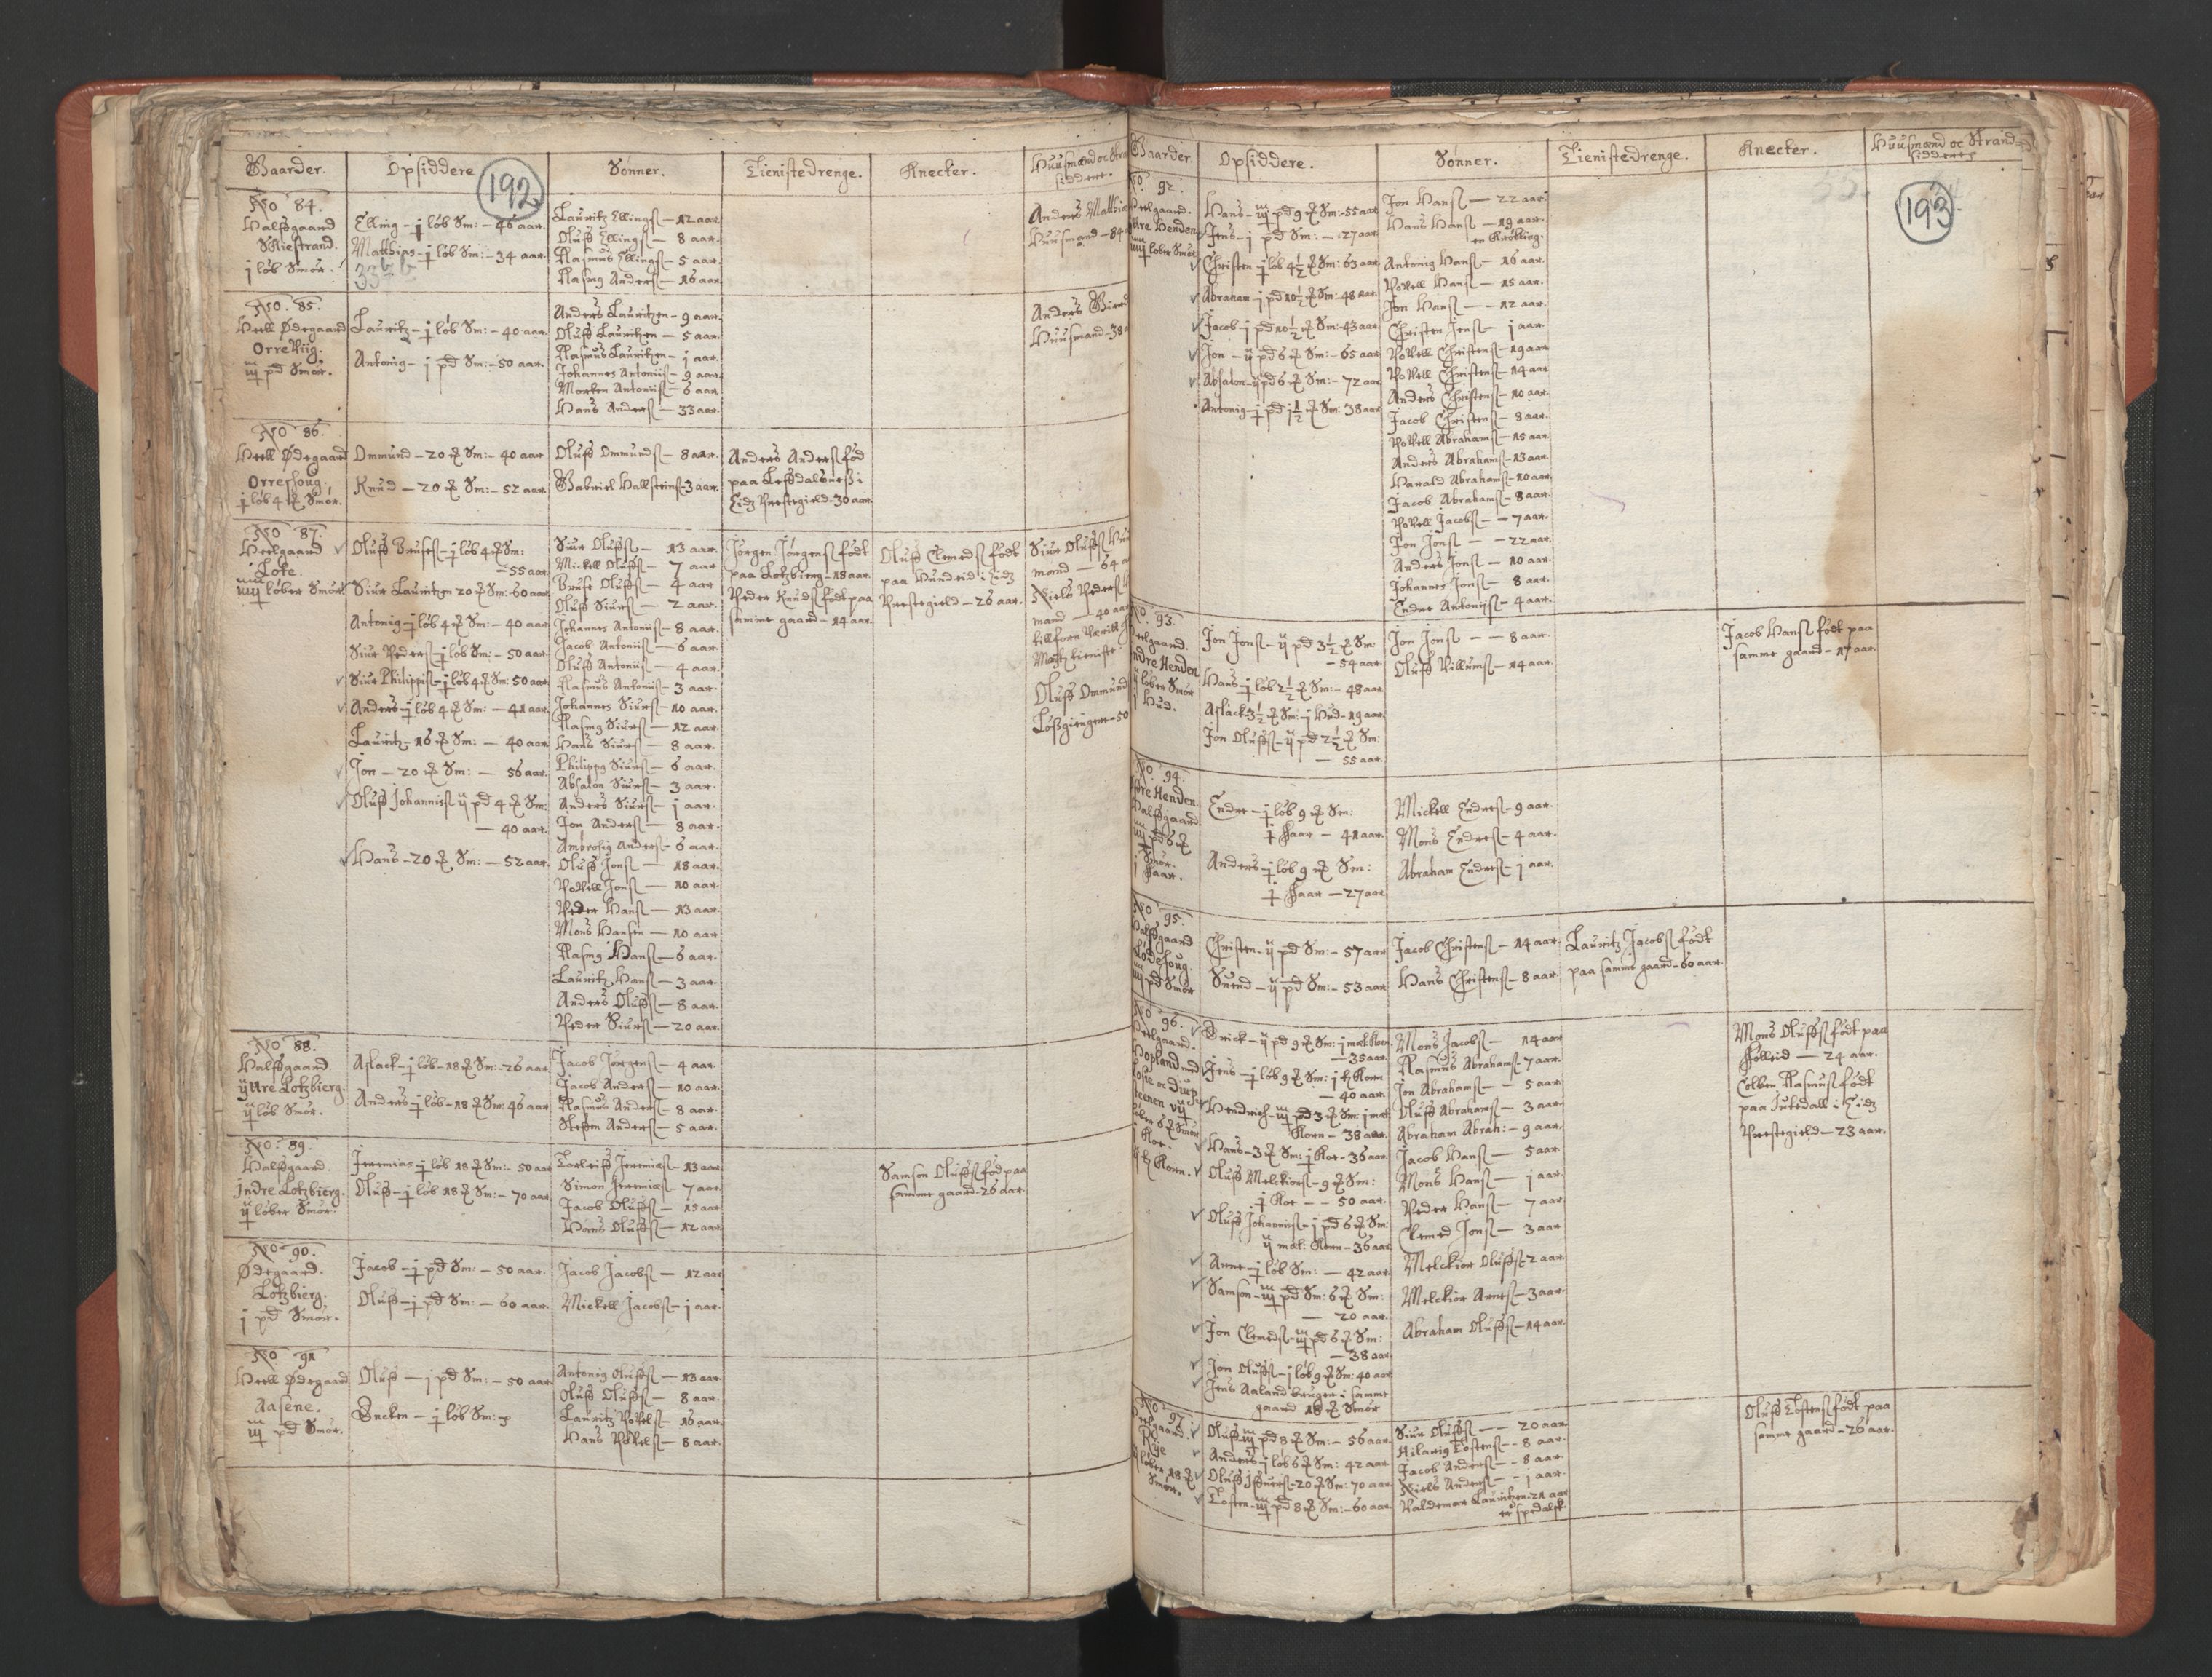 Gaarder.
Opsiddere
192
Sønner.
Tienistedrenge.
Knecter.
Huusmænd oc Stran
siddere.
No 84.
Halfgaard
Skiestrand.
j løb Smør.
Elling - j løb Sm: - 46 aar.
Matthias - j løb Sm: - 34 aar.
Lauritz Ellings - 12 aar
Oluff Ellings - 8 aar.
Rasmus Ellings - 5 aar.
Rasmus Anders - 16 aar
Anders Matthia
Huusmand - 84
No. 85.
Heell Ødegaard
Orre Viig.
iij pd Smør.
Lauritz - j løb Sm: - 40 aar.
Antonig - j pd Sm: - 50 aar.
Anders Lauritzen - 9 aar.
Oluff Lauritzen - 5 aar.
Rasmus Lauritzen - j aar.
Johannes Antonii - 9 aar.
Morten Antonii - 6 aar.
Hans Anders - 33 aar.
Anders
Huusmand - 38
No 86.
Heell Ødegaard
Orreshoug.
j løb 4 Smør.
Ommund - 20 Sm: - 40 aar
Knud - 20 Sm: - 52 aar.
Oluff Ommunds - 8 aar.
Gabriel Hallsteins - 3 aar.
Anders Anders fød
paa Lefsdalsnes i
Eidz Prestegield - 30 aar.
No 87.
Heelgaard
Lote.
iiij løber Smør.
Oluff Bruses - j løb 4 Sm:
- 55 aar
Siur Lauritzen 20 Sm: 60 aar
Antonig - j løb 4 Sm: - 40 aar
Siur Peders - j løb Sm: - 50 aar.
Siur Philippis - j løb 4 Sm: 50 aar
Anders - j løb 4 Sm: - 41 aar.
Lauritz - 16 Sm: - 40 aar
Jon - 20 Sm: - 56 aar.
Oluff Johannis ij pd 4 Sm:
- 40 aar.
Hans - 20 Sm: - 52 aar.
Siur Oluffs - 13 aar.
Mickell Oluffs - 7 aar
Bruse Oluffs - 4 aar
Oluff Siurs - 2 aar.
Johannes Antonii - 8 aar.
Jacob Antonii - 6 aar.
Oluff Antonii - 4 aar.
Rasmus Antonii - 3 aar.
Johannes Siurs - 10 aar.
Rasmus Siurs - 12 aar.
Hans Siurs - 8 aar.
Philippus Siurs - 6 aar.
Absalon Siurs - 3 aar.
Anders Siurs - j aar.
Jon Anders - 8 aar.
Ambrosig Anders - 6 aar.
Oluff Jons - 18 aar.
Povell Jons - 10 aar.
Peder Hans - 13 aar.
Mons Hansen - 10 aar
Rasmus Hans - 6 aar.
Lauritz Hans - 3 aar.
Anders Oluffs - 8 aar.
Peder Siurs - 20 aar.
Jørgen Jørgens født
paa Lotzbierg - 18 aar.
Peder Knuds født paa
samme gaard - 14 aar.
Oluff Clemeds født
paa Hundeid i Eidz
Prestegield - 26 aar.
Siur Oluffs Huu
mand - 64 a
Niels Peders
mand - 40 aar
Oluff Ommund
Løsgiengere - 50
No 88.
Halfgaard.
yttre Lotzbierg.
ij løb Smør.
Aslack - j løb - 18 Sm: - 26 aar
Anders - j løb - 18 Sm: 46 aar
Jacob Jørgens - 4 aar.
Jacob Anders - 10 aar.
Rasmus Anders - 8 aar.
Steffen Anders - 5 aar.
No. 89.
Halfgaard.
Indre Lotzbierg.
ij løber Smør.
Jeremias - j løb 18 Sm: - 50 aar
Oluff - j løb 18 Sm: - 70 aar.
Torleif Jeremias - 13 aar.
Simon Jeremias - 7 aar.
Jacob Oluffs - 15 aar
Hans Oluffs - 12 aar.
Samson Oluffs fød paa
samme gaard - 26 aar.
No 90.
Ødegaard.
Lotzbierg.
j pd Smør.
Jacob - j pd Sm: - 50 aar.
Oluff - j pd Sm: - 60 aar.
Jacob Jacobs - 12 aar
Mickell Jacobs - j aar.
No 91
Heell Ødegaard
Aasene.
iij pd Smør.
Oluff - j pd Sm: - 50 aar.
Encken - j løb Sm:
Antonig Oluffs - 13 aar.
Oluff Oluffs - 8 aar.
Lauritz Povels - 16 aar.
Hans Povels - 8 aar.
Gaarder.
Opsiddere.
Sønner.
Tienistedrenge.
Knecter.
Huusmænd oc Strand
siddere
193
No. 92.
Heelgaard.
yttre Henden
iiij løber Smør
Hans - iij pd 9 Sm: - 55 aar
Jens - j pd Sm: - 27 aar.
Christen - j løb 4½ Sm: 63 aar
Abraham - j pd 10½ Sm: 48 aar.
Jacob - j pd 10½ Sm: - 43 aar
Jon - ij pd 6 Sm: - 65 aar
Absalon - ij pd 6 Sm: - 72 aar
Antonig - j pd j½ Sm: 38 aar
Jon Hans - 22 aar
Hans Hans - 19 aar.
en Krøbling.
Antonig Hans - 16 aar.
Povell Hans - 15 aar.
Jon Hans - 12 aar.
Christen Jens - j aar.
Povell Christens - 19 aar.
Povell Christens - 14 aar
Anders Christens - 10 aar.
Jacob Christens - 8 aar.
Povell Abrahams - 15 aar.
Anders Abrahams - 13 aar.
Harald Abrahams - 10 aar.
Jacob Abrahams - 8 aar.
Povell Jacobs - 7 aar.
Jon Jons - 22 aar.
Anders Jons - 10 aar.
Johannes Jons - 8 aar.
Endre Antonis - 4 aar.
No. 93.
Heelgaard.
Indre Henden
løber Smør
j Hud.
Jon Jons - ij pd 3½ Sm
- 54 aar
Hans - j løb 2½ Sm: - 48 aar
Aslack 3½ Sm: - j Hud - 19 aar.
Jon Oluffs - ij pd 2½ Sm:
- 55 aar.
Jon Jons - 8 aar.
Oluff Villums - 14 aar.
Jacob Hans født paa
samme gaard - 17 aar.
No. 94.
Øfre Henden.
Halfgaard
iij pd 6
Smør.
j Faar.
Endre - j løb 9 Sm:
j Faar - 41 aar.
Anders - j løb 9 Sm:
j Faar - 27 aar
Mickell Endres - 9 aar.
Mons Endres - 4 aar.
Abraham Endres - j aar.
No 95.
Halfgaard
Lødehoug.
iiij pd Smør
Christen - ij pd Sm: - 57 aar
Suend - ij pd Sm: - 53 aar
Jacob Christens - 14 aar.
Hans Christens - 8 aar.
Lauritz Jacobs født
paa samme gaard - 60 aar.
No 96.
Heelgaard.
Hopland med
Erick - ij pd 9 Sm: j mæl: Korn.
- 35 aar.
Jens - j løb 9 Sm: j Korn
- 40 aar.
Hendrich - iij pd 3 Sm: j mæl
Korn - 38 aar.
Hans - 3 Sm: j Koe - 36 aar
Oluff Melckiors - 9 Sm:
j Koe - 50 aar.
Oluff Johannis - j pd 6 Sm:
ij mæl: Korn - 36 aar
Arne - j løb Sm: - 42 aar
Samson - iij pd Sm: 6 Sm:
- 20 aar.
Jon Clemeds - iij pd 6 Sm:
- 38 aar
Jon Oluffs - j løb 9 Sm: 40 aar
Jens Aaland bruger i samme
gaard 18 Smør
Mons Jacobs - 14 aar
Rasmus Abrahams - 7 aar.
Jon Abrahams - 5 aar.
Oluff Abrahams - 3 aar.
Abraham Abrah: - 9 aar.
Jacob Hans - 5 aar.
Mons Hans - j aar.
Peder Hans - 7 aar
Clemed Jons - 3 aar
Melckior Oluffs - 2 aar.
Melckior Arnes - 3 aar.
Abraham Oluffs - 14 aar.
Mons Oluffs født paa
Følleid - 24 aar.
Colben Rasmus født
paa i Eidz
Prestegield - 23 aar.
No 97.
Heelgaard.
Rye
løber 18
Smør.
Oluff - iij pd 8 Sm: - 56 aar.
Anders - j løb 6 Sm: 42 aar
Oluff - 20 Sm: 70 aar
Tosten - iij pd 8 Sm: - 60 aar
Siur Oluffs - 20 aar
Hilarig Tostens - 8 aar.
Jacob Anders - 8 aar.
Niels Anders - j aar.
Valdemar Lauritzen - 21 aar
er spedalsk
Oluff Tostens født paa
samme gaard - 26 aar.